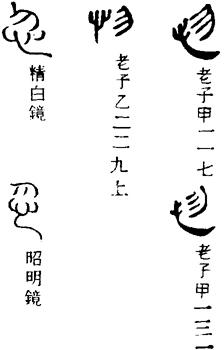 老子甲一一七
老子甲一三一
物
老子乙二二九上
忽
精白鏡
忽
昭明鏡